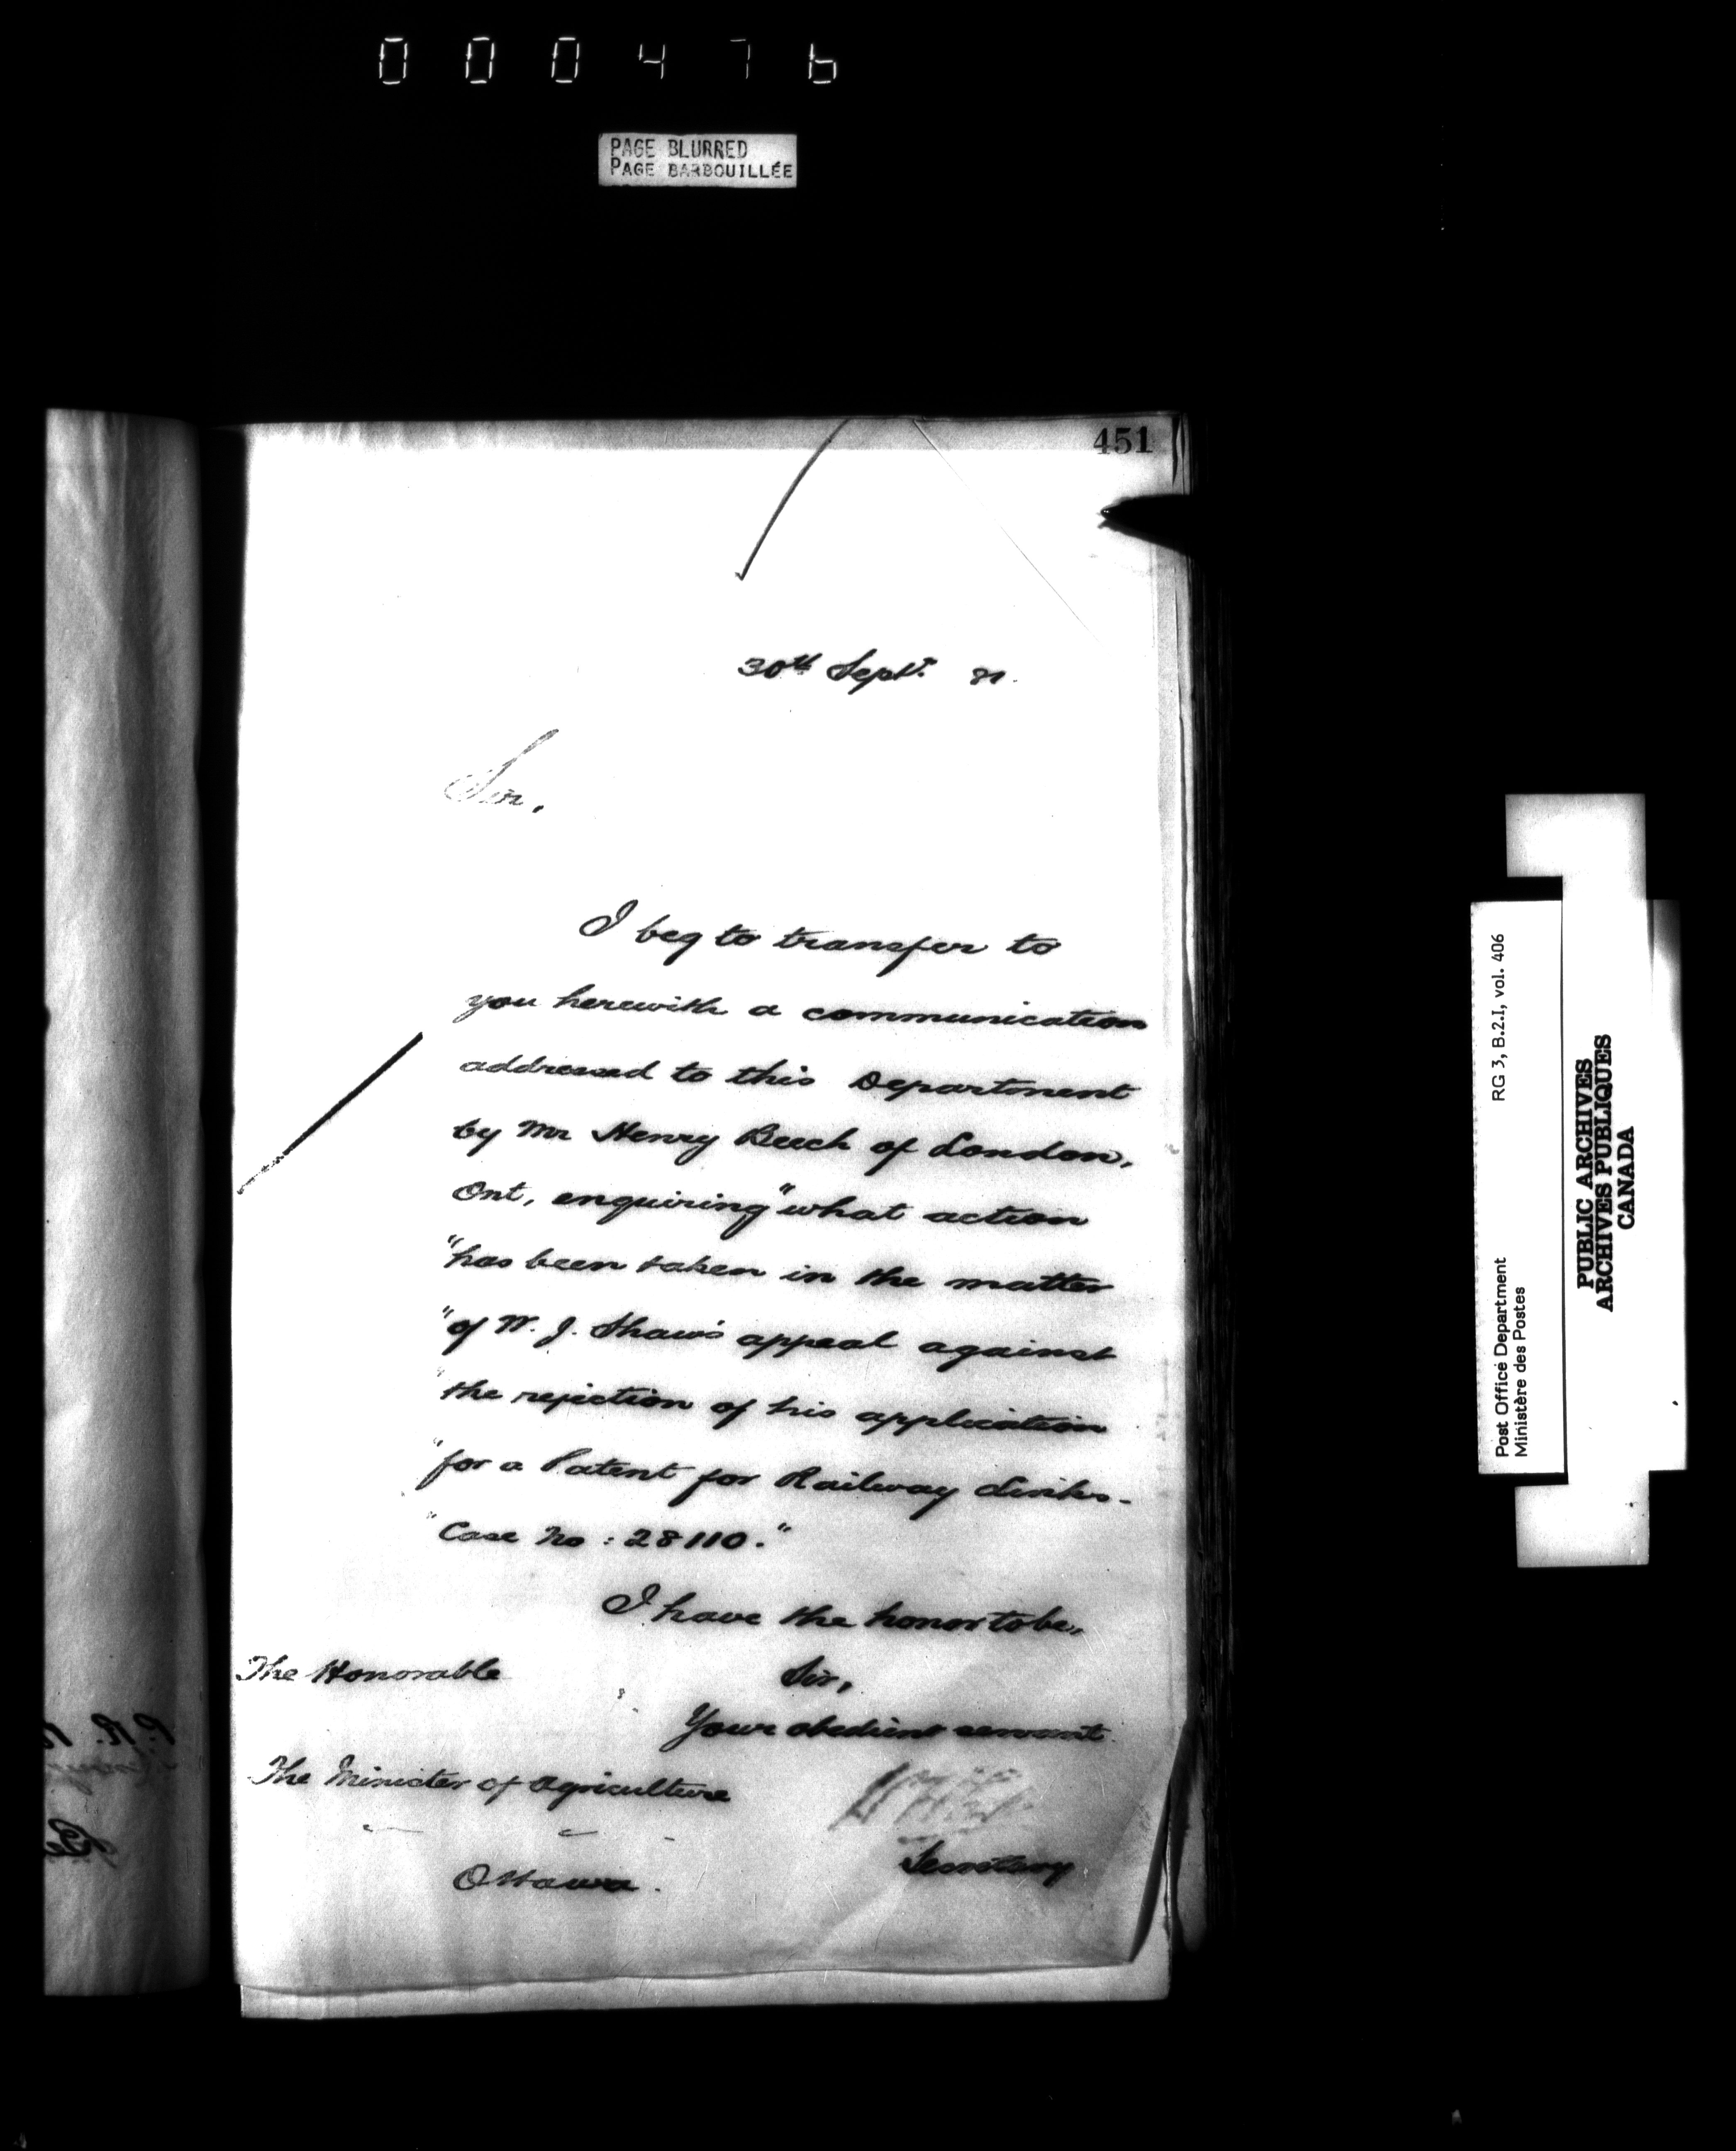 000476
PAGE BLURRED
PAGE BARBOUILLÉE
451
30th Sept. 81.
Sir,
I beg to transfer to
you herewith a communication
addressed to this Department
by Mr Henry Beech of London,
Ont, enquiring "what action
"has been taken in the matter
"of W. J. Shaw's appeal against
"the rejection of his application
"for a Patent for Railway Links.
"Case No : 28110."
I have the honor to be,
Sir,
Your obedient servant.
The Honorable
The Minister of Agriculture
Ottawa.
Secretary
Post Office Department RG 3, B.2.I, vol. 406
Ministère des Postes
PUBLIC ARCHIVES
ARCHIVES PUBLIQUES
CANADA